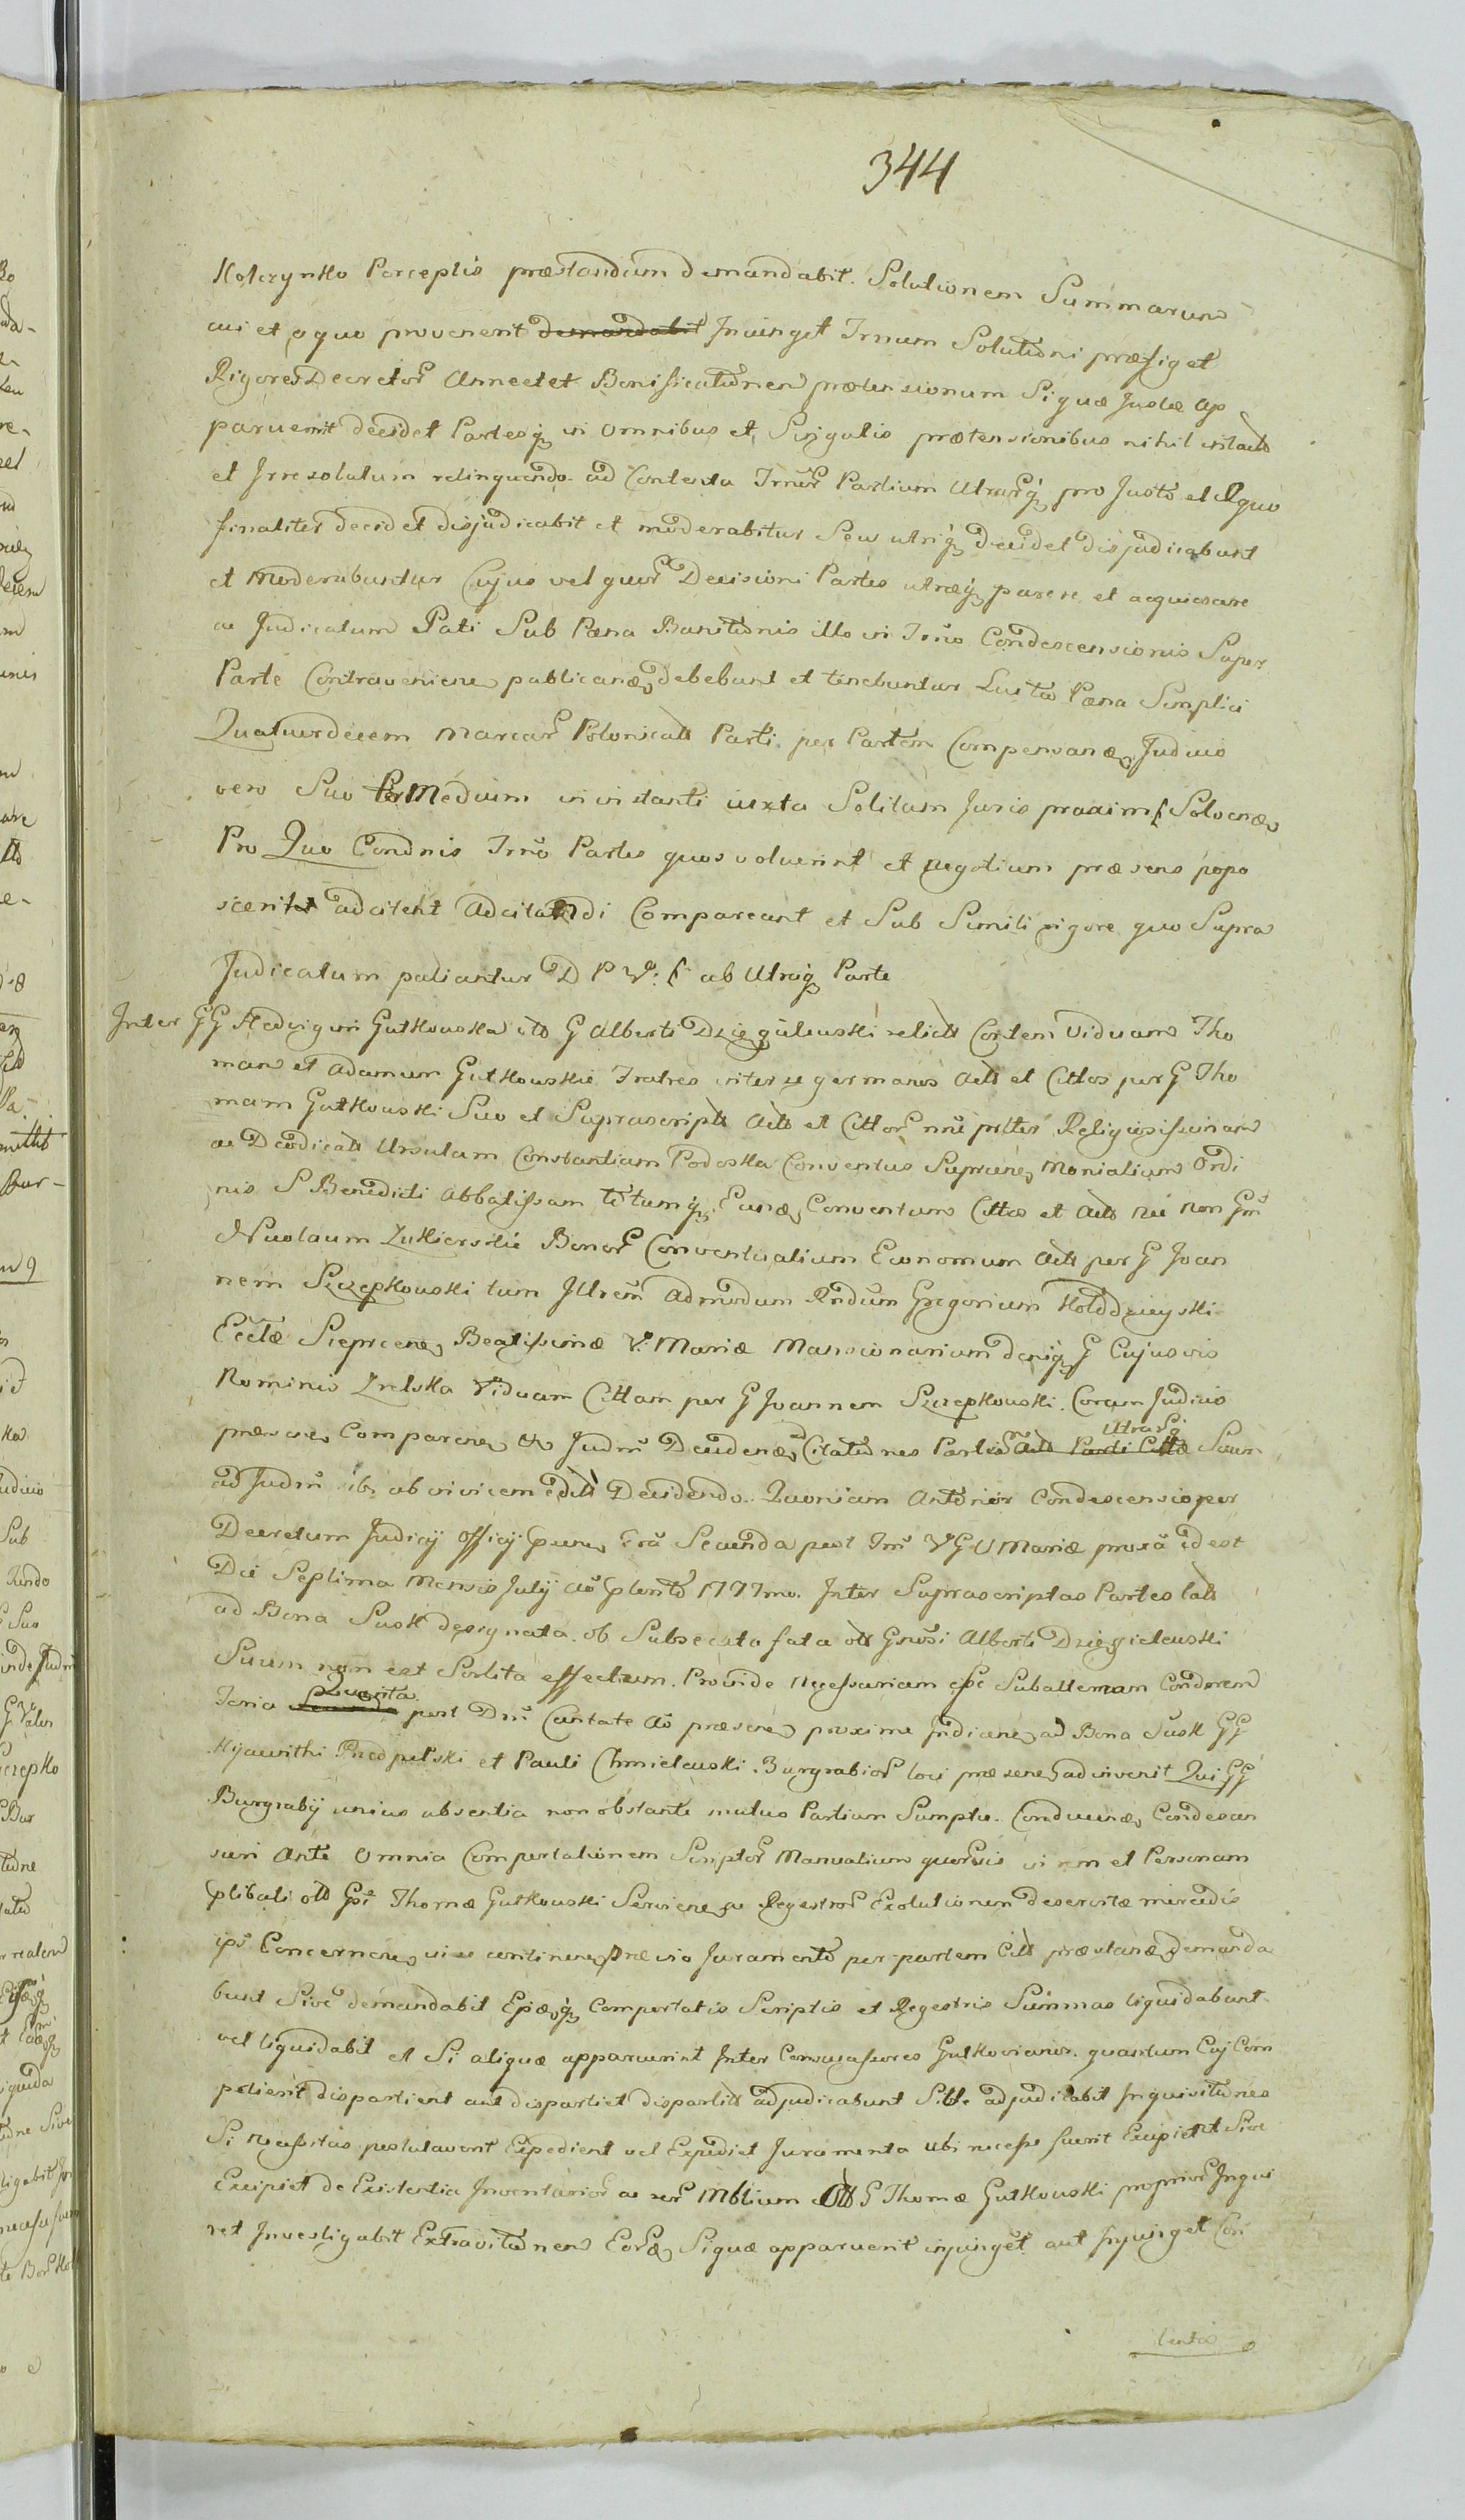 344
Kolczynko Perceptis præstandum demandabit. Solutionem Summarum
cui et a quo provenerit demandabit Injunget Trnum Solutioni præfiget
Rigores Decretor Annectet Bonificationem prætensionum Si quæ Justæ ap
paruerint decidet Partesq in omnibus et Singulis prætensionibus nihil intactò
et Irresolutum relinquendo ad Contenta Trnor Partium Utrarq pro Justo et Æquo
finaliter decidet disjudicabit et moderabitur Seu utriq decidet disjudicabunt
et Moderabuntur Cujus vel quor Decisioni Partes utræq parere et acquiescare
ac Judicatum Pati Sub Pæna Banitionis illo in Trno Condescensionis Super
Parte Contraveniene publicanda debebunt et tenebuntur Luita Pæna Simplici
Quatuordecem Marcar Polonicall Parti per Partem Compensanæ Judicio
vero Suo per Medium in instanti iuxta Solitam Juris praxim Solvenæ
Pro Quo Condnis Trno Partes quos voluerint et negotium præsens popo
scerit adcitent Adcitatidi Compareant et Sub Simili rigore quo Supra
Judicatum patiantur D P V: ab Utraq Parte
Inter GG Hedvigim Gutkouska olo G Alberti Dzięgielewski relictà Contem Viduam Tho
mam et Adamum Gutkouskie Fratres inter se germanos Actò et Cittos per G Tho
mam Gutkouski Suo et Suprascriptò Actò et Cittor nnie prltter Religiosissimam
ac Deodicatà Ursulam Constantiam Podoska Conventus Sieprcene Monialium Ordi
nis S Benedicti Abbatissam totumq Eunæ Conventum Cittos et Actò nec non Gm
Nicolaum Zukierskie Bonor Conventualium Economum Actò per G Joan
nem Szczepkouski tum Illrem Admodum Rndum Gregorium Holddzieyski
Ecclæ Sieprcene Beatissimæ V: Mariæ Mansionarium deniq G Cujusvis
Nominis Zrelska Viduam Cittam per G Joannem Szczepkouski. Coram Judicio
præsene Comparene Judm Decidenæ Citationes Partis Actò Parti Cittæ Utrarq Suum
ad Judm ibi ab invicem Decidendo. Quoniam Anterior Condescensio per
Decretum Judicij Officij Sieprcene Fra Secunda post Tm VGV Mariæ proxa id est
Die Septima Mensis Julij Ao plento 1777mo. Inter Suprascriptas Partes lalò
ad Bona Susk designata. ob Subsecuta fata olo Gnosi Alberti Dzięgielewski
Suum non est Sortita effectum. Proinde Necessarium esse Subalternam Condnem
Feria Secunda Quarta post Dm Cantate Ao præsene proxime Indicane ad Bona Susk GG
Hijacinthi Przedpełski et Pauli Chmielewski. Burgrabior loci præsene adinvenit Qui GG
Burgrabij unius absentia non obstante mutuo Partium Sumptu. Conducenæ Condescen
suri Ante Omnia Comportationem Scriptor Manualium quorsvis in rem et Personam
plibati olo Gsi Thomæ Gutkouski Serviene seu Regestror Exolutionem deservitæ mercedis
ips Concernene in se continene præviò Juramento per partem Citt præstanæ demanda
bunt Sive demandabit Epæq Comportatis Scriptis et Regestris Summas liquidabunt
vel liquidabit et Si aliquæ apparuerint Inter Consuccessores Gutkovianos. quantum Cuj Com
petierit dispartient aut dispartiet dispartitò adjudicabunt Sive adjudicabit Inquisitiones
Si necessitas postulaverit Expedient vel Expediet Juramenta ubi necesse fuerit Excipient Sive
Excipiet de Existentia Inventarior ac rer Mblium Olo G Thomæ Gutkouski proprior Inqui
ret Investigabit Extraditionem Eorda Si quæ apparuerit injunget aut Injunget Con
tentæ